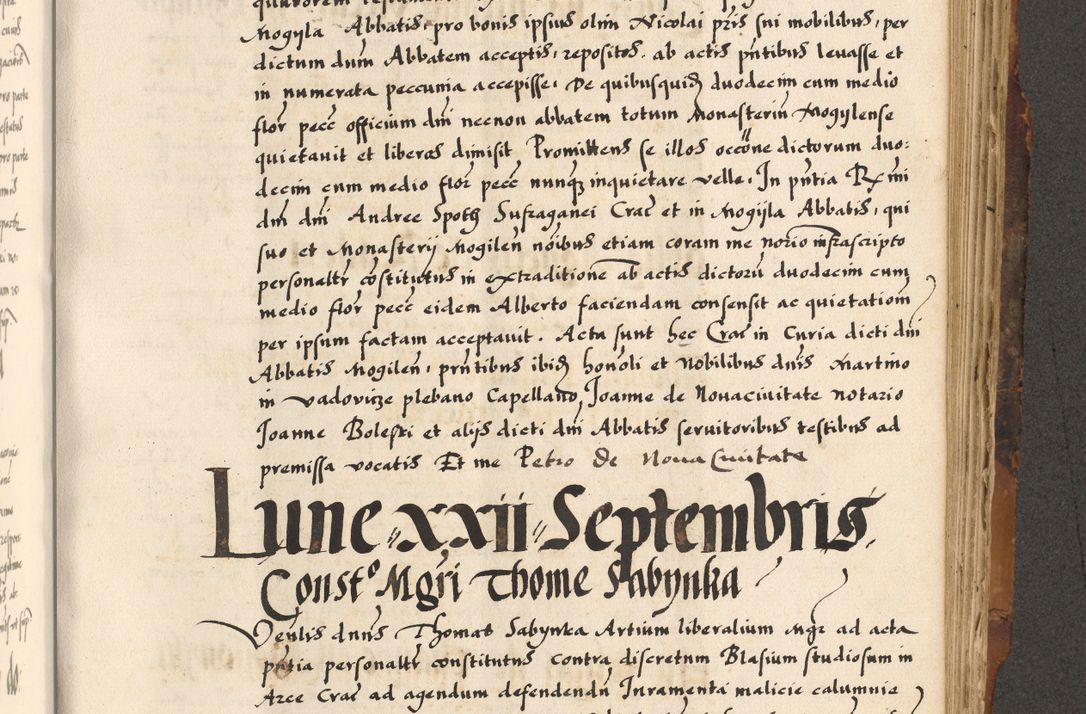 Mogyla Abbatis, pro bonis ipsius olim Nicolai pris sui mobilibus, per
dictum dnm Abbatem acceptis, repositos. ab actis pntibus levasse et
in numerata peccunia accepisse. De quibusquid duodecim cum medio
flor pecc officium dni necnon abbatem totum Monasterin Mogylense
quietavit et liberos dimisit Promittens se illos occone dictorum duo-
decim cum medio flor pecc nunq inquietare velle. In pntia Rmi
dni dni Andree Spoth Sufraganei Crac et in Mogijla Abbatis, qui
suo et Monasterij Mogilen noibus etiam coram me norio infrascripto
personaltr constitutus in extraditione ab actis dictoru duodecim cum
medio flor pecc eidem Alberto faciendam consensit ac quietationi
per ipsum factam acceptavit. Acta sunt hec Crac in Curia dicti dni
Abbatis Mogilen, prntibus ibid honoli et Nobilibus dnis Martino
in vadovicze plebano Capellano, Joanne de Novacivitate notario
Joanne Boleski et alijs dicti dni Abbatis servitoribus testibus ad
premissa vocatis Et me Petro de Nova Civitate
Lune xxii Septembris
Const° Mgri Thome Sabynka
Venlis dnus Thomas Sabynka Artium liberalium Mgr ad acta
pntia personaltr constitutus contra discretum Blasium studiosum in
Arce Crac ad agendum defendendu Iuramenta malicie calumnie